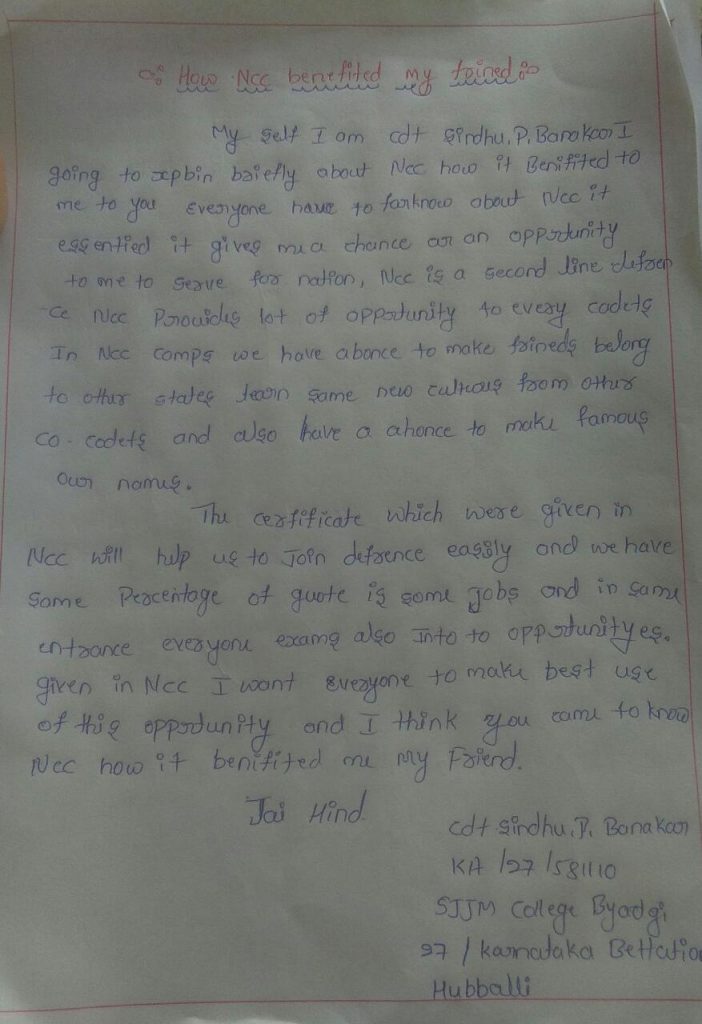 How Ncc benefited my frined
My self I am cdt Sindhu.P.Banakaar I
going to xpbin baiefly about Ncc how it Benifited to
me to you Everyone have to farknow about Ncc it
essentied it gives me a chance or an opportunity
to me to serve for nation, Ncc is a second line defren
ce Ncc Provides lot of opportunity to every cadets
In Ncc comps we have abonce to make frineds belong
to other states learn same new cultrous from other
co-cadets and also have a ahonce to make famous
our names.
The cerfificate which were given in
Ncc will help us to Join defrence eassily and we have
some Percentage of quote is some jobs and in same
entrance everyone exams also Into to opportunityes.
given in Ncc I want Everyone to make best use
of this opportunity and I think you came to know
Ncc how it benifited me my Friend.
Jai Hind
cdt Sindhu.P. Banakaar
KA /27 /581110
SJJM College Byadgi
27 / karnataka Bettatio
Hubballi